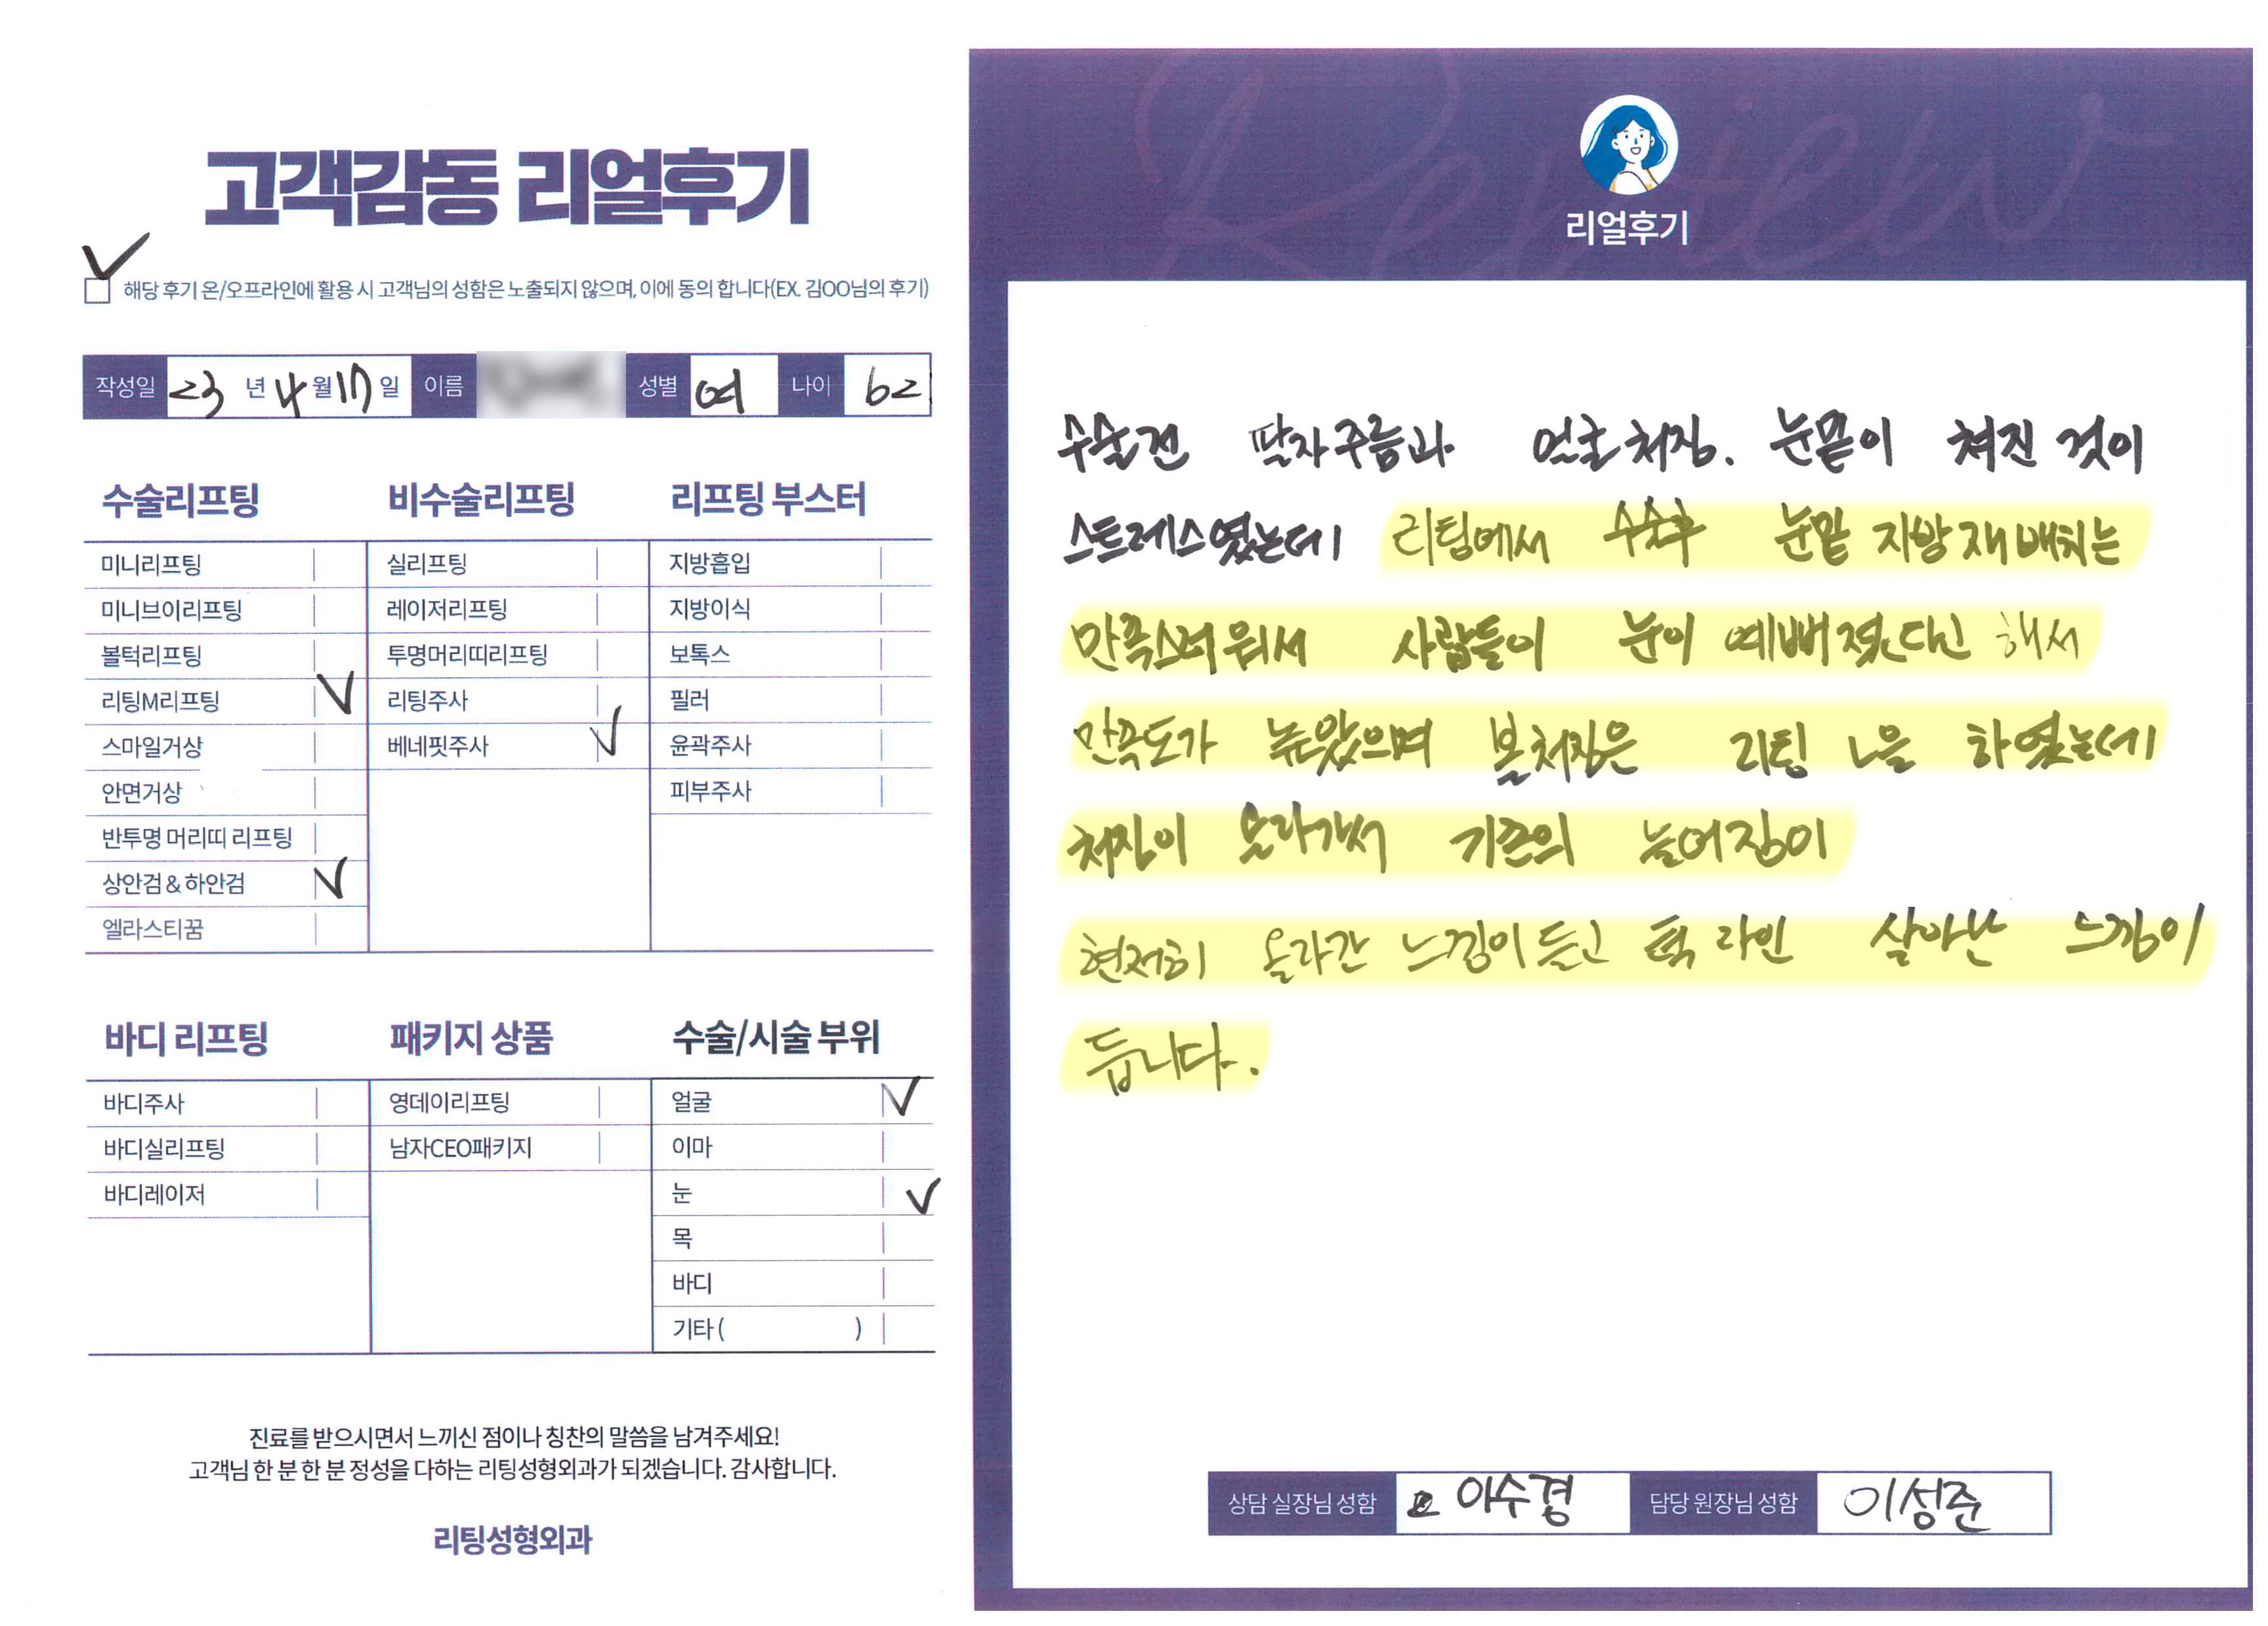 고객감동 리얼후기
해당 후기 온/오프라인에 활용 시 고객님의 성함은 노출되지 않으며, 이에 동의 합니다(EX. 김OO님의 후기)
작성일 23 년 4 월 17 일 이름 성별 여 나이 62
수술리프팅
미니리프팅
미니브이리프팅
볼턱리프팅
리팅M리프팅
스마일거상
안면거상
반투명 머리띠 리프팅
상안검 & 하안검
엘라스티꿈
비수술리프팅
실리프팅
레이저리프팅
투명머리띠리프팅
리팅주사
베네핏주사
리프팅 부스터
지방흡입
지방이식
보톡스
필러
윤곽주사
피부주사
바디 리프팅
바디주사
바디실리프팅
바디레이저
패키지 상품
영데이리프팅
남자CEO패키지
수술/시술 부위
얼굴
이마
눈
목
바디
기타 ( )
진료를 받으시면서 느끼신 점이나 칭찬의 말씀을 남겨주세요!
고객님 한 분 한 분 정성을 다하는 리팅성형외과가 되겠습니다. 감사합니다.
리팅성형외과
Review
리얼후기
수술전 팔자주름과 얼굴처짐. 눈끝이 쳐진 것이
스트레스였는데 리팅에서 수술후 눈밑 지방재배치는
만족스러워서 사람들이 눈이 예뻐졌다고 해서
만족도가 높았으며 볼처짐은 리팅 을 하였는데
처짐이 올라가서 기존의 늘어짐이
현저히 올라간 느낌이 들고 턱 라인 살아난 느낌이
듭니다.
상담 실장님 성함 이수경 담당 원장님 성함 이성준